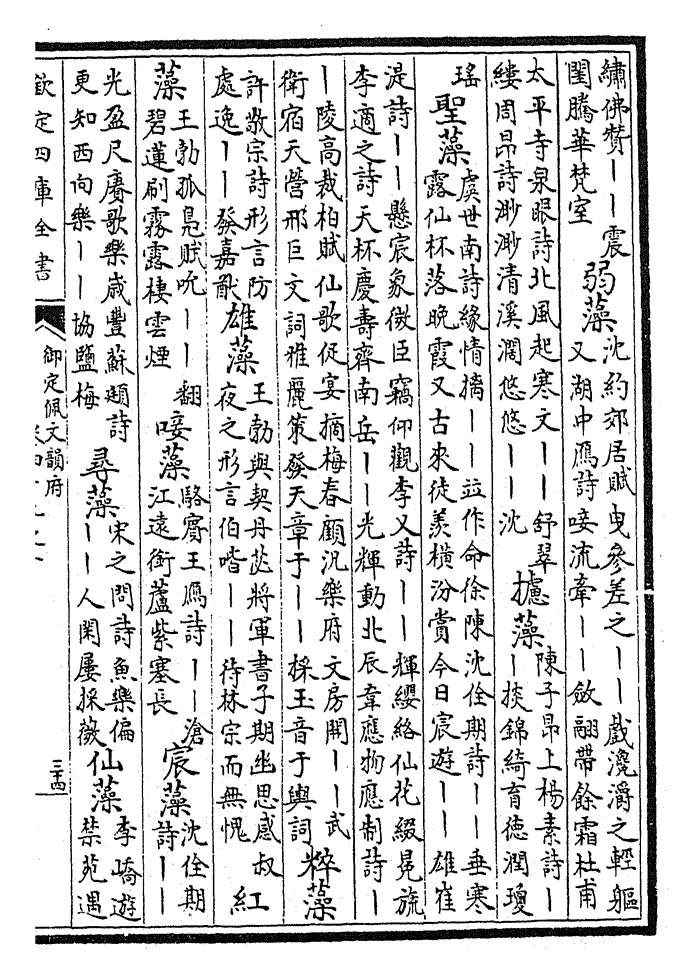 繡佛贊——震
閨騰華梵室
弱藻
沈約郊居賦曳參差之——戲瀺灂之輕軀
又湖中鴈詩唼流牽——斂翮帶餘霜杜甫
太平寺泉眼詩北風起寒文——舒翠
縷周昂詩渺渺清溪濶悠悠——沈
攄藻
陳子昂上楊素詩—
—掞錦綺育德潤瓊
瑤
聖藻
虞世南詩緣情摛——竝作命徐陳沈佺期詩——垂寒
露仙杯落晚霞又古來徒羨橫汾賞今日宸遊——雄崔
湜詩——懸宸象微臣竊仰觀李乂詩——輝纓絡仙花綴冕旒
李適之詩天杯慶壽齊南岳——光輝動北辰韋應物應制詩—
—陵高裁柏賦仙歌促宴摘梅春顧汎樂府文房開——武
衛宿天營邢巨文詞雅麗策發天章于——採玉音于輿詞
粹藻
許敬宗詩形言防
處逸——發嘉猷
雄藻
王勃與契丹苾將軍書子期幽思感叔
夜之形言伯喈——待林宗而無愧
紅
藻
王勃孤鳧賦吮——翻
碧蓮刷霧露棲雲煙
唼藻
駱賓王鴈詩——滄
江遠銜蘆紫塞長
宸藻
沈佺期
詩——
光盈尺賡歌樂歲豐蘇頲詩
更知西向樂——協鹽梅
尋藻
宋之問詩魚樂偏
——人閑屢採薇
仙藻
李嶠遊
禁苑遇
欽定四庫全書
御定佩文韻府
三十四